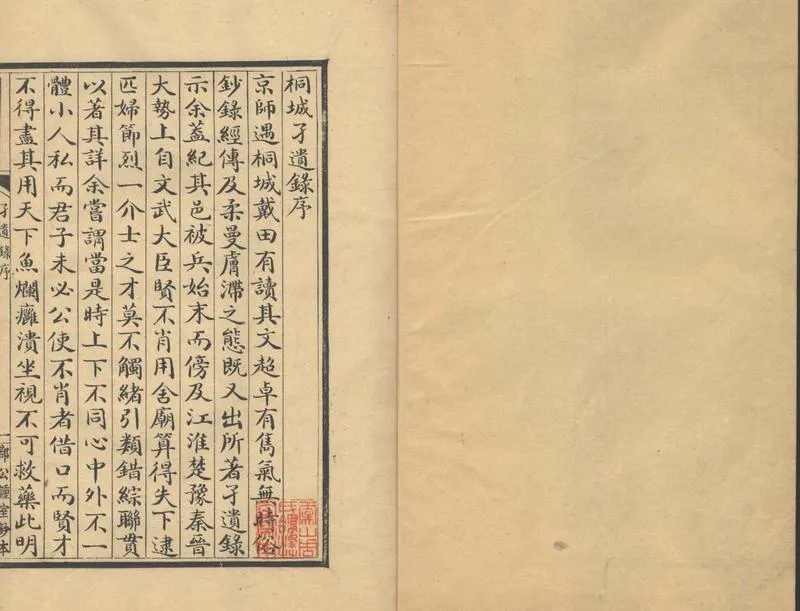 桐城孑遺錄序
京師遇桐城戴田有讀其文超卓有雋氣無時俗
鈔錄經傳及柔曼膚滯之態既又出所著孑遺錄
示余蓋紀其邑被兵始末而傍及江淮楚豫秦晉
大勢上自文武大臣賢不肖用舍廟算得失下逮
匹婦節烈一介士之才莫不觸緒引類錯綜聯貫
以著其詳余嘗謂當是時上下不同心中外不一
體小人私而君子未必公使不肖者借口而賢才
不得盡其用天下魚爛癰潰坐視不可救藥此明
孑遺錄序
公鍾室鈔本